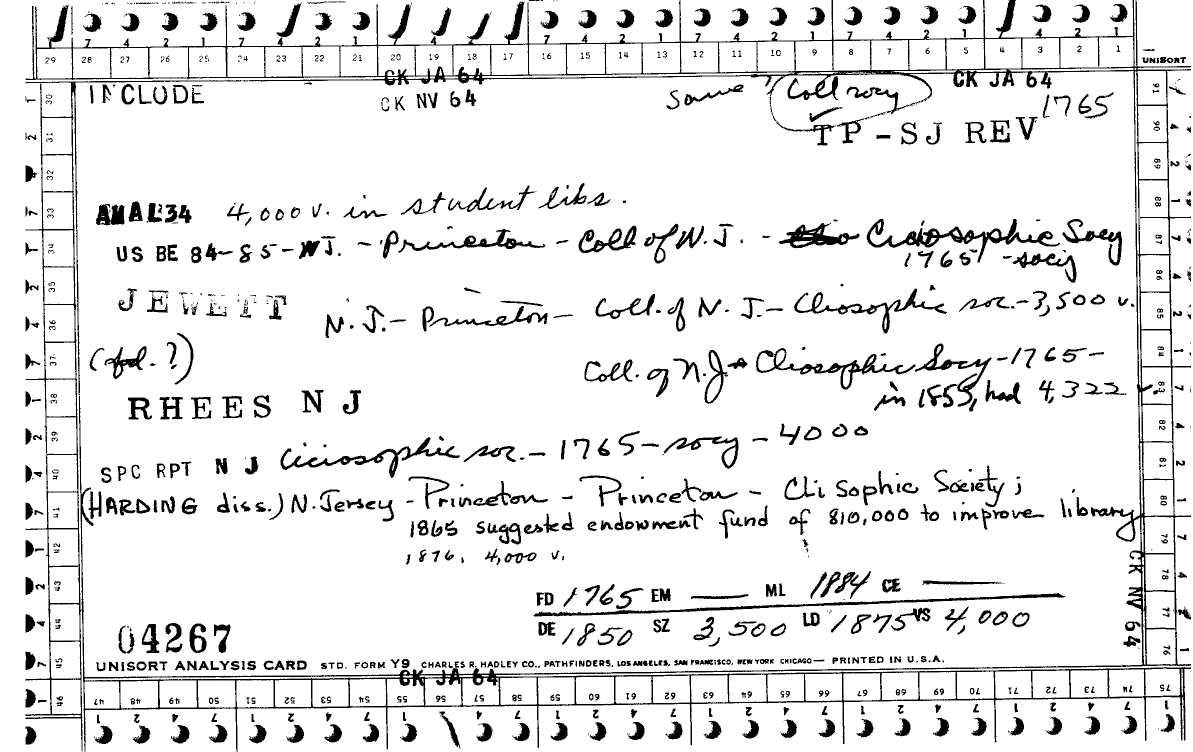 7 4 2 1 7 4 2 1 7 4 2 1 7 4 2 1 7 4 2 1 7 4 2 1
29 28 27 26 25 24 23 22 21 20 19 18 17 16 15 14 13 12 11 10 9 8 7 6 5 4 3 2 1
UNISORT
CK JA 64
CK JA 64
INCLUDE
CK NV 64
Same ? Coll socy
1765
TP-SJ REV
AMAL34 4,000 v. in student libs.
US BE 84-85-NJ. - Princeton - Coll. of N.J. - Cliosophic Socy
1765 - socy
JEWETT N.J. - Princeton - Coll. of N.J. - Cliosophic soc. - 3,500 v.
Coll. of N.J. Cliosophic Socy - 1765 -
in 1855, had 4,322 v.
RHEES N J
SPC RPT N J Cliciosophic soc. - 1765 - socy - 4000
(HARDING diss.) N. Jersey - Princeton - Princeton - Cli Sophic Society;
1865 suggested endowment fund of $10,000 to improve library
1876, 4,000 v.
FD 1765 EM — ML 1884 CE —
DE 1850 SZ 3,500 LD 1875 VS 4,000
04267
CK NV 64
UNISORT ANALYSIS CARD STD. FORM Y9 CHARLES R. HADLEY CO., PATHFINDERS, LOS ANGELES, SAN FRANCISCO, NEW YORK CHICAGO — PRINTED IN U.S.A.
CK JA 64
47 48 49 50 51 52 53 54 55 56 57 58 59 60 61 62 63 64 65 66 67 68 69 70 71 72 73 74 75